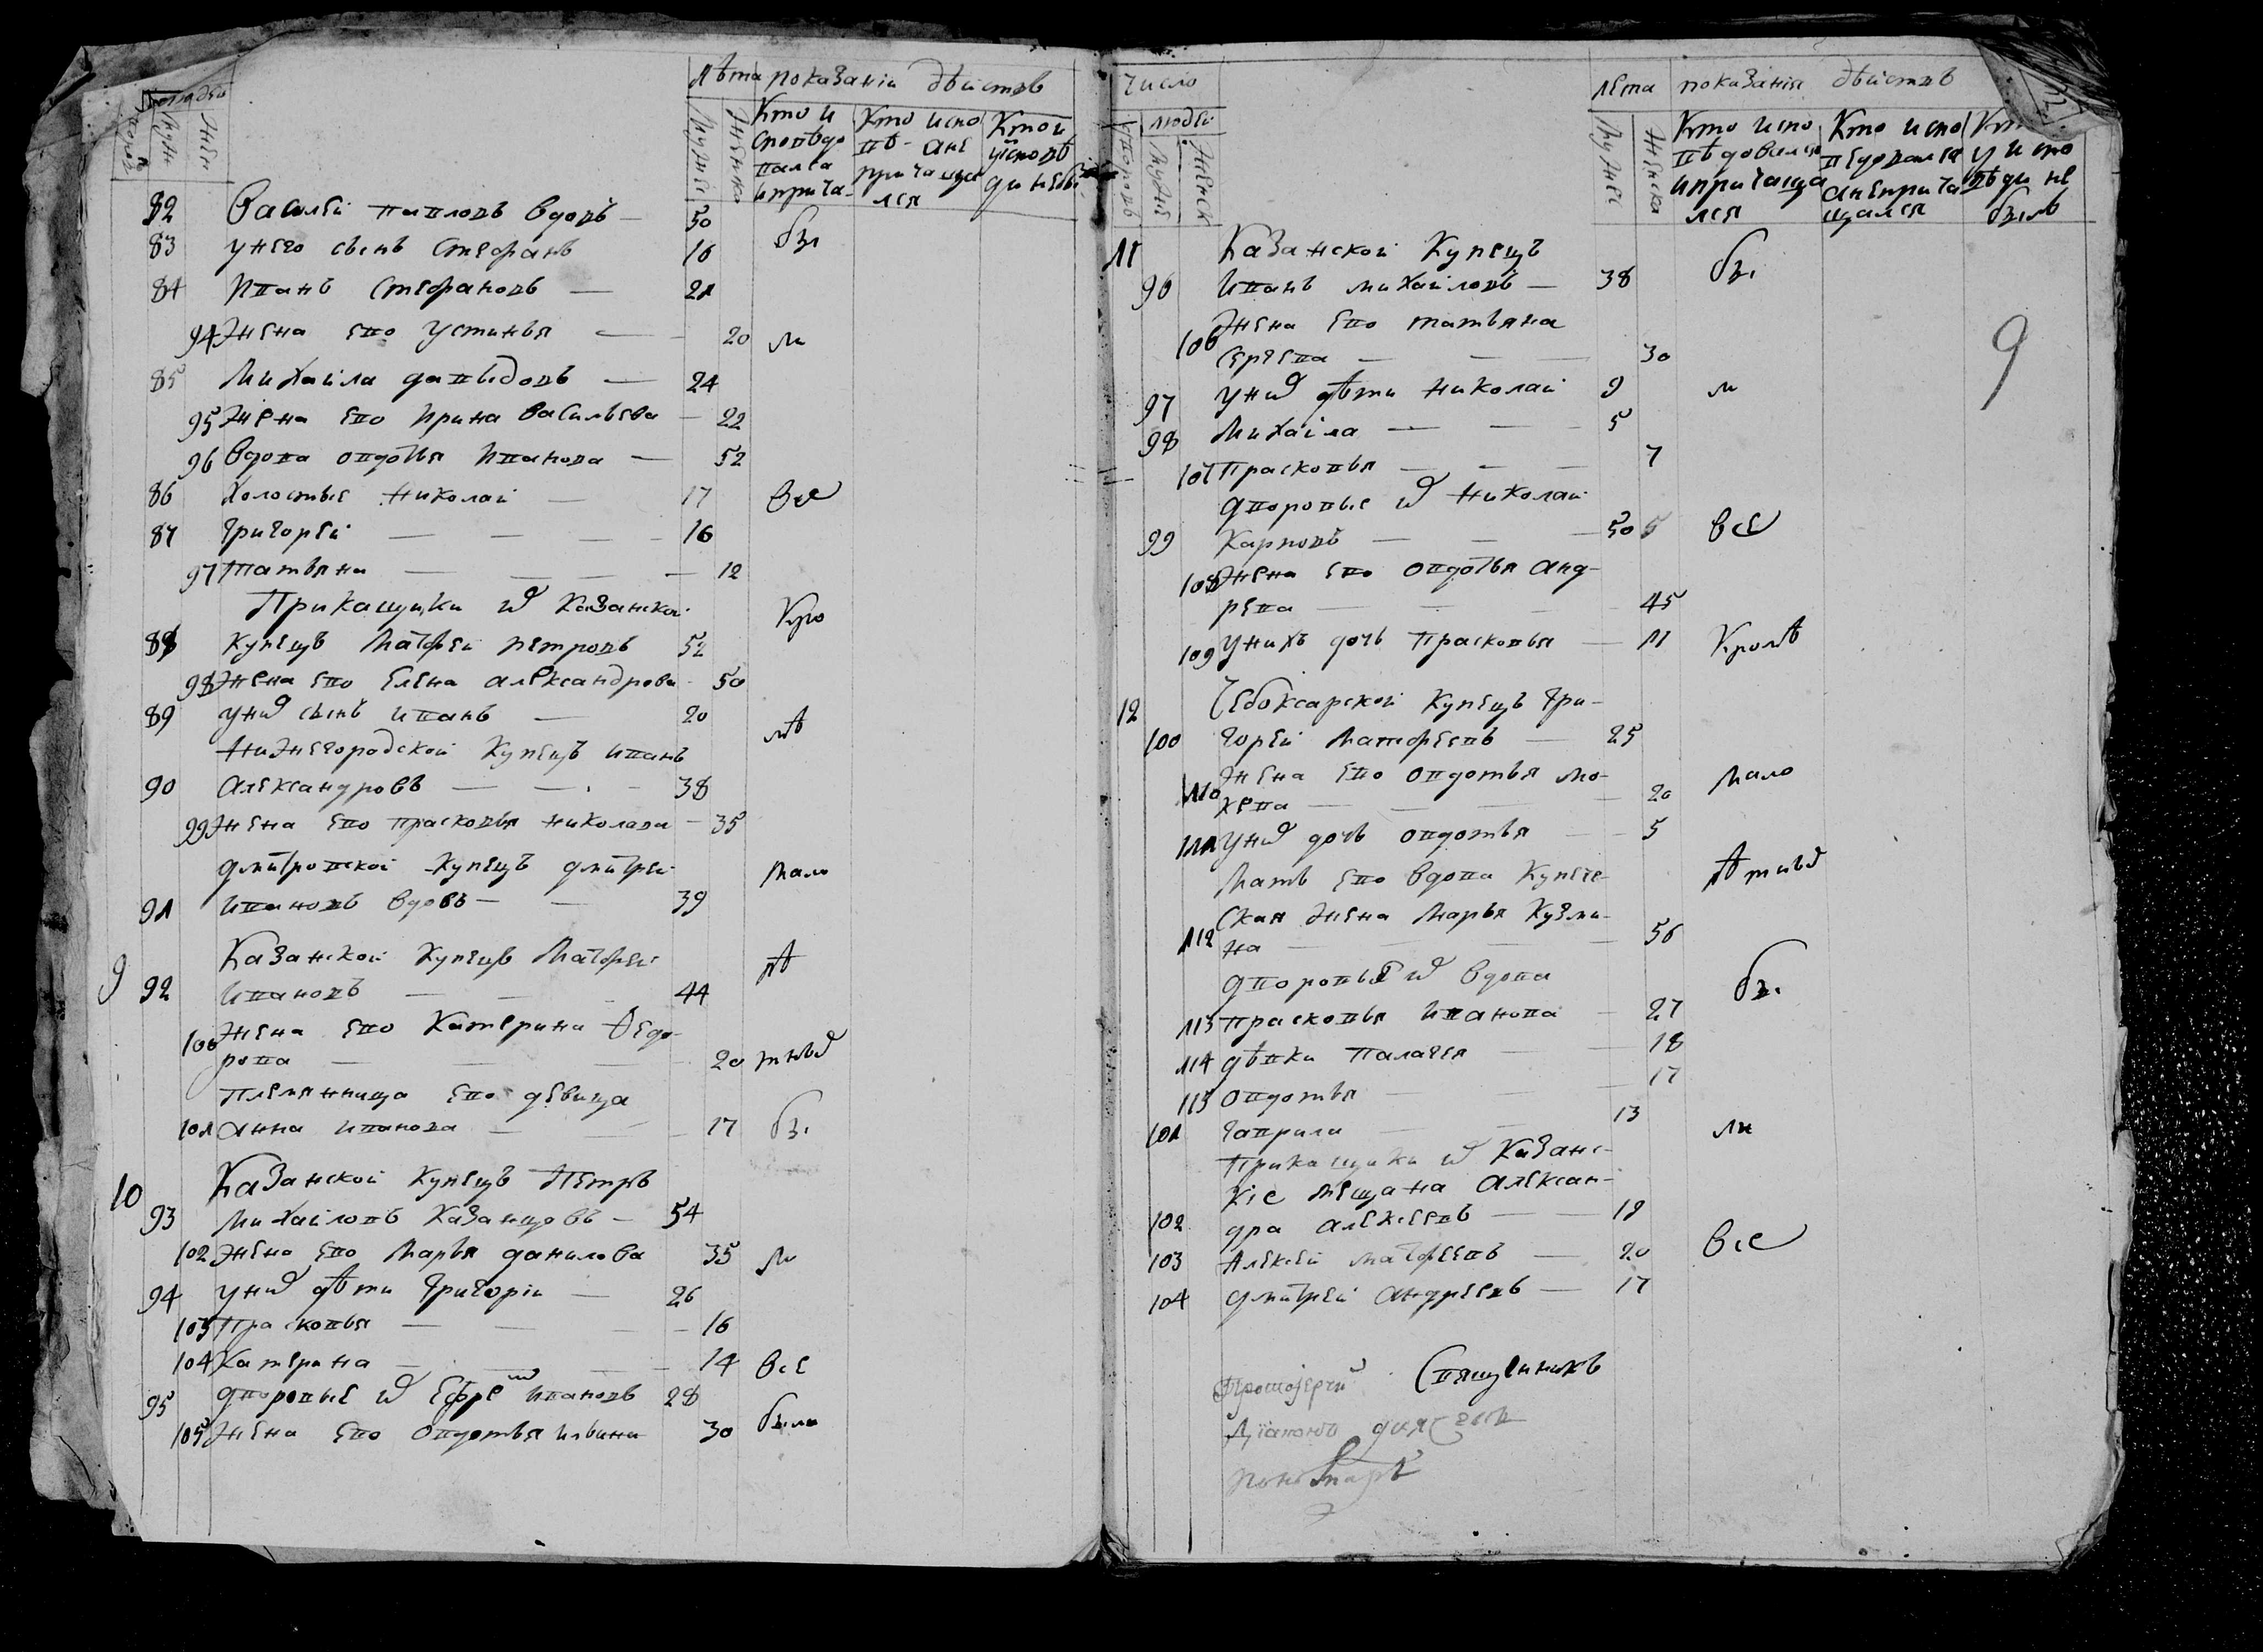 лѣта показанiи дѣйствъ
людей
дворовъ
Мужи
Жен
Мужес
Женска
Кто и споведовался и прича-
Кто испопѣ- ане причащался
Кто и у исповѣди небы-
82 Василей павловъ вдовъ — 50
бы
83 унего сынъ Стефанъ 16
84 Иванъ Стефановъ — 21
94 Жена ево Устинья — 20 ли
85 Михайла давыдовъ — 24
95 Жена ево Ирина Васильева — 22
96 Вдова овдотья Иванова — 52
86 Холостые Николай — 17 Все
87 Григорей — — — 16
97 татьяна — — — 12
Прикащики ѿ Казанской
Кро
88 купецъ Матфей петровъ 52
98 Жена ево Елена александрова 50
89 уних сынъ иванъ — 20
мѣ
Нижегородской Купецъ иванъ
90 александровъ — — 38
99 Жена ево прасковья николаева — 35
дмитровской купецъ дмитрей
мало
91 ивановъ вдовъ — — 39
9 Казанской купецъ Матфей
лѣ
92 ивановъ — — 44
100 Жена ево Катерина Ѳедо-
рова — — — 20 тныхъ
племянница ево девица
101 анна иванова — — 17 бы
10 Казанской Купецъ Петръ
93 михайловъ казанцовъ — 54
102 Жена ево Марья данилова 35 ли
94 уних дѣти Григорiи — 26
103 прасковья — — 16
104 Катерина — — 14 все
95 дворовые ѿ Ефремъ ивановъ 28
105 Жена ево Овдотья ильина 30 были
число
людей
дворовъ
Мужей
Женск
лета показанiя дѣйствъ
Мужес
Женска
Кто испопѣдовался и причащался
Кто исповедовался а непричащался
Кто у исповѣди не былъ
11 Казанской Купецъ
бы
96 Иванъ михайловъ — 38
9
106 Жена ево татьяна
Сергева — — 30
97 уних дѣти николай 9 ли
98 Михайла — — 5
107 Прасковья — — 7
дворовые ѿ николай
99 Карповъ — — 50 все
108 Жена ево овдотья анд-
рева — — 45
109 унихъ дочь Прасковья — 11 Кромѣ
12 Чебоксарской Купецъ Гри-
100 горей Матфеевъ — 25
110 Жена ево овдотья мо-
кева — — 20
мало
111 уних дочь овдотья — 5
Мать ево вдова купече-
лѣтныхъ
ская жена Марья Кузми-
112 на — — 56
дворовые ѿ вдова
бы
113 прасковья иванова — 27
114 дѣвки палагея — 18
115 овдотья — — 17
101 гаврила — — 13
ли
Прикащики ѿ Казанс-
кiе мещана алексан-
102 дра алексеевъ — 19
103 Алексей матфеевъ — 20 все
104 дмитрей андреевъ — 17
Протоiерей Священникъ
Дiаконъ дiячекъ
пономарь